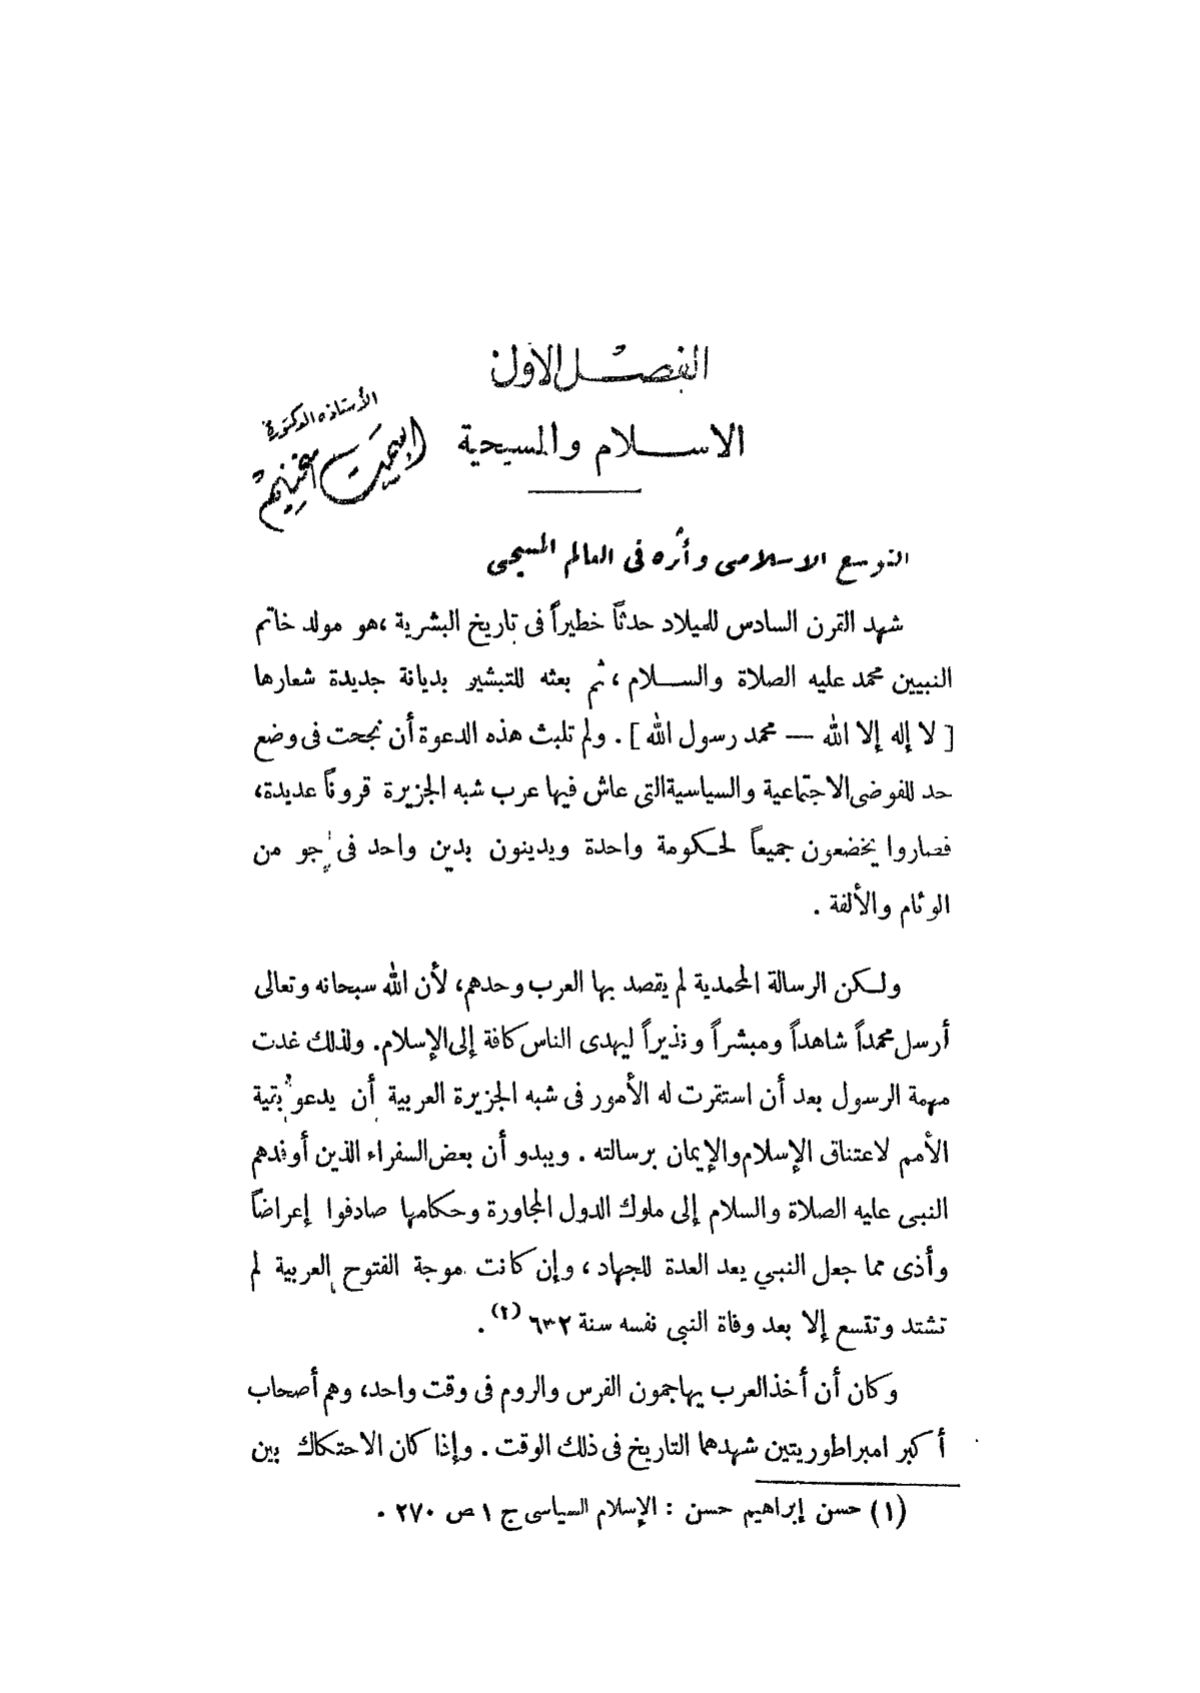 الفصل الأول
الأستاذة الدكتورة
الاسلام والمسيحية
التوسع الاسلامى وأثره فى العالم المسيحى
شهد القرن السادس للميلاد حدثاً خطيراً فى تاريخ البشرية ، هو مولد خاتم
النبيين محمد عليه الصلاة والسلام ، ثم بعثه للتبشير بديانة جديدة شعارها
[ لا إله إلا الله — محمد رسول الله ] . ولم تلبث هذه الدعوة أن نجحت فى وضع
حد للفوضى الاجتماعية والسياسية التى عاش فيها عرب شبه الجزيرة قروناً عديدة،
فصاروا يخضعون جميعاً لحكومة واحدة ويدينون بدين واحد فى جو من
الوئام والألفة .
ولكن الرسالة المحمدية لم يقصد بها العرب وحدهم، لأن الله سبحانه وتعالى
أرسل محمداً شاهداً ومبشراً ونذيراً ليهدى الناس كافة إلى الإسلام. ولذلك غدت
مهمة الرسول بعد أن استقرت له الأمور فى شبه الجزيرة العربية أن يدعو بقية
الأمم لاعتناق الإسلام والإيمان برسالته . ويبدو أن بعض السفراء الذين أوفدهم
النبى عليه الصلاة والسلام إلى ملوك الدول المجاورة وحكامها صادفوا إعراضاً
وأذى مما جعل النبي يعد العدة للجهاد ، وإن كانت موجة الفتوح العربية لم
تشتد وتتسع إلا بعد وفاة النبى نفسه سنة ٦٣٢ (٢) .
وكان أن أخذ العرب يهاجمون الفرس والروم فى وقت واحد، وهم أصحاب
أكبر امبراطوريتين شهدهما التاريخ فى ذلك الوقت . وإذا كان الاحتكاك بين
(١) حسن إبراهيم حسن : الإسلام السياسى ج ١ ص ٢٧٠ .